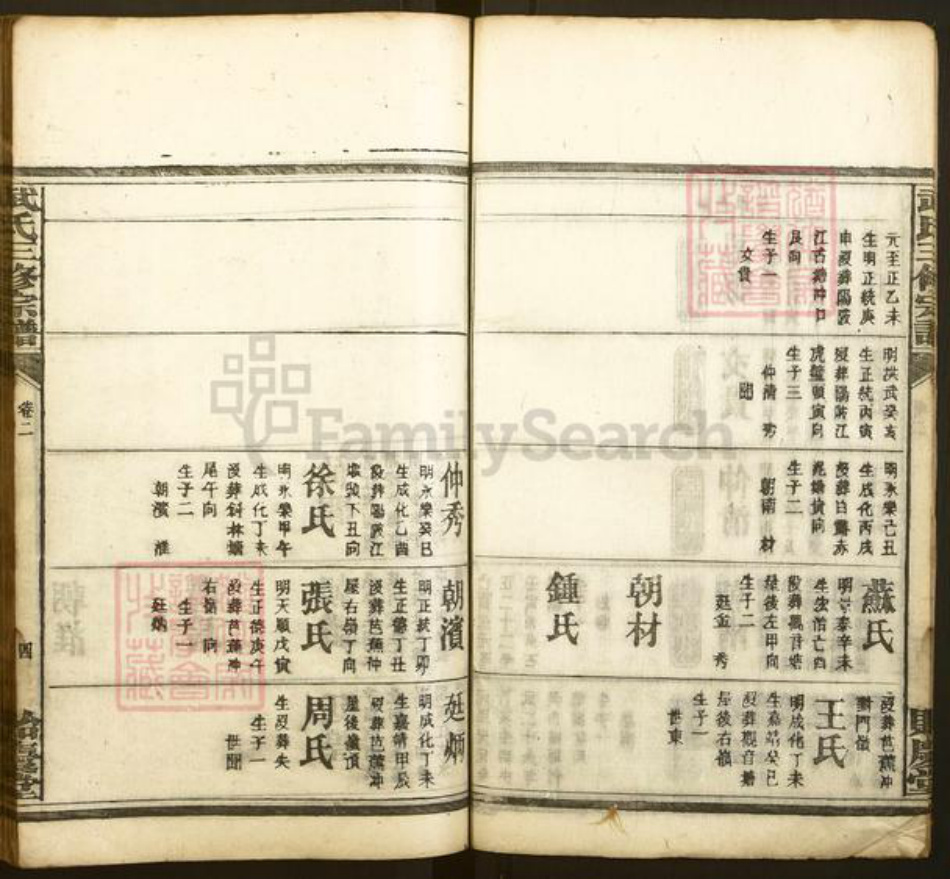 武氏三修宗譜
元至正乙未
生明正統庚
申歿葬陽陂
江西塘沖口
艮向
生子一
文貴
明洪武癸亥
生正統丙寅
歿葬陽陂江
虎鼈頭寅向
生子三
仲清 秀
聞
明永樂己丑
生成化丙戌
生子二
朝南 材
蘇氏
生子二
廷金 秀
朝材
鍾氏
歿葬芭蕉冲
對門嶺
王氏
明成化丁未
生嘉靖癸巳
歿葬觀音塘
屋後右嶺
生子一
世東
武氏三修宗譜
卷二
四
仲秀
明永樂癸巳
生成化乙酉
歿葬陽陂江
虎頭下丑向
徐氏
明永樂甲午
生成化丁未
歿葬斜林塘
尾午向
生子二
朝濱 淮
朝濱
明正統丁卯
生正德丁丑
歿葬芭蕉冲
屋右嶺丁向
張氏
明天順戊寅
生正德庚午
歿葬芭蕉冲
右嶺 向
生子一
廷炳
廷炳
明成化丁未
生嘉靖甲辰
歿葬芭蕉冲
屋後嶺頂
周氏
生歿葬失
生子一
世聞
FamilySearch